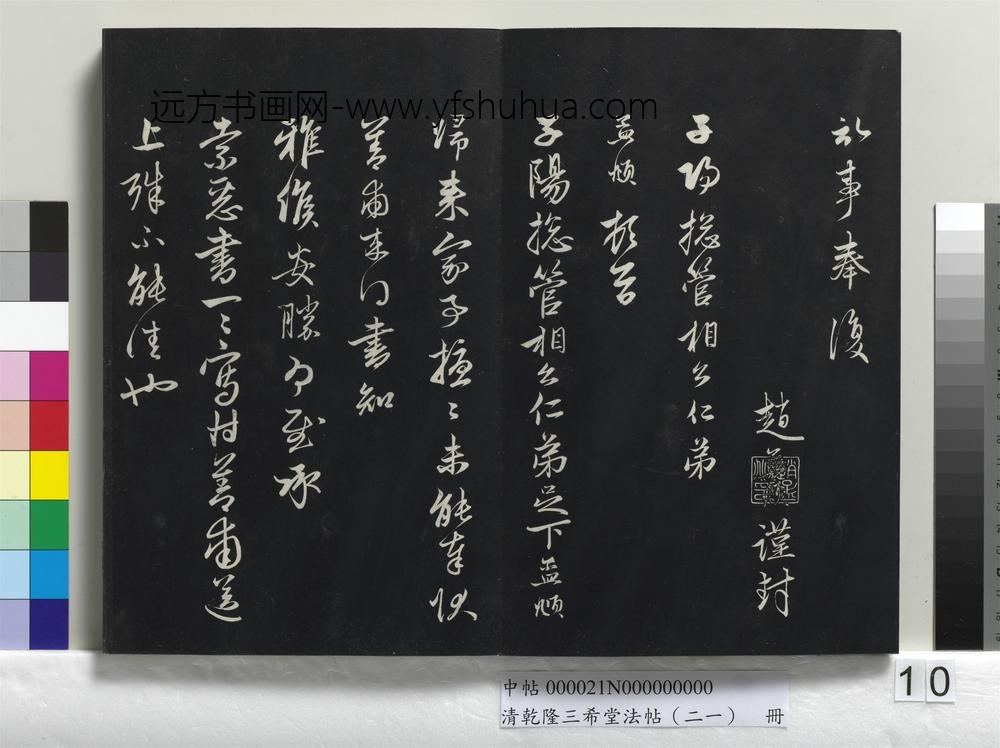 礼事奉復
趙
謹封
子陽総管相公仁弟
孟頫頓首
子陽総管相公仁弟足下孟頫
歸来家子捴〻未能奉状
善甫来得書知
雅候安勝為慰承
索惡書一〻寫付善甫送
上殊不能佳也
远方书画网-www.yfshuhua.com
中帖 000021N000000000
清乾隆三希堂法帖（二一） 冊
10